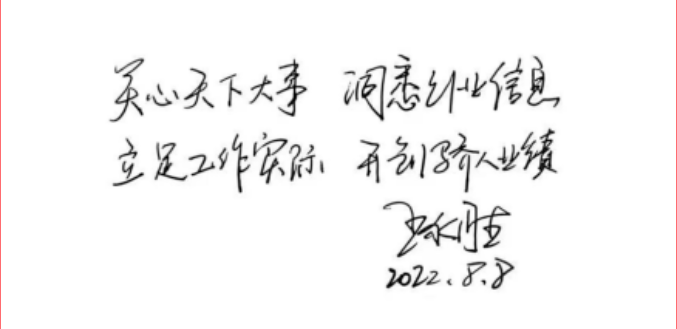 关心天下大事 洞悉行业信息
立足工作实际 开创骄人业绩
王永胜
2022.8.8